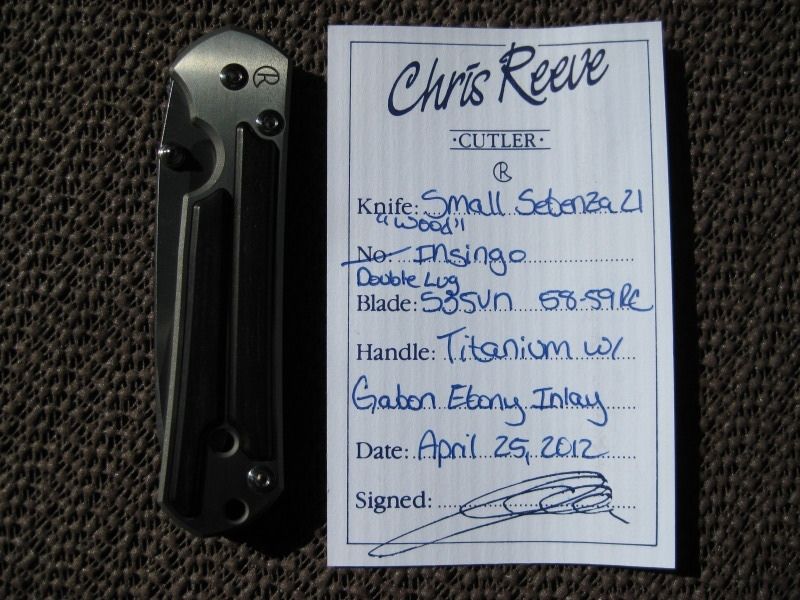 Chris Reeve
·CUTLER·
R
Knife: Small Sebenza 21
"Wood"
No: Insingo
Double Lug
Blade: S35VN 58-59 RC
Handle: Titanium w/
Gabon Ebony Inlay
Date: April 25, 2012
Signed:
R